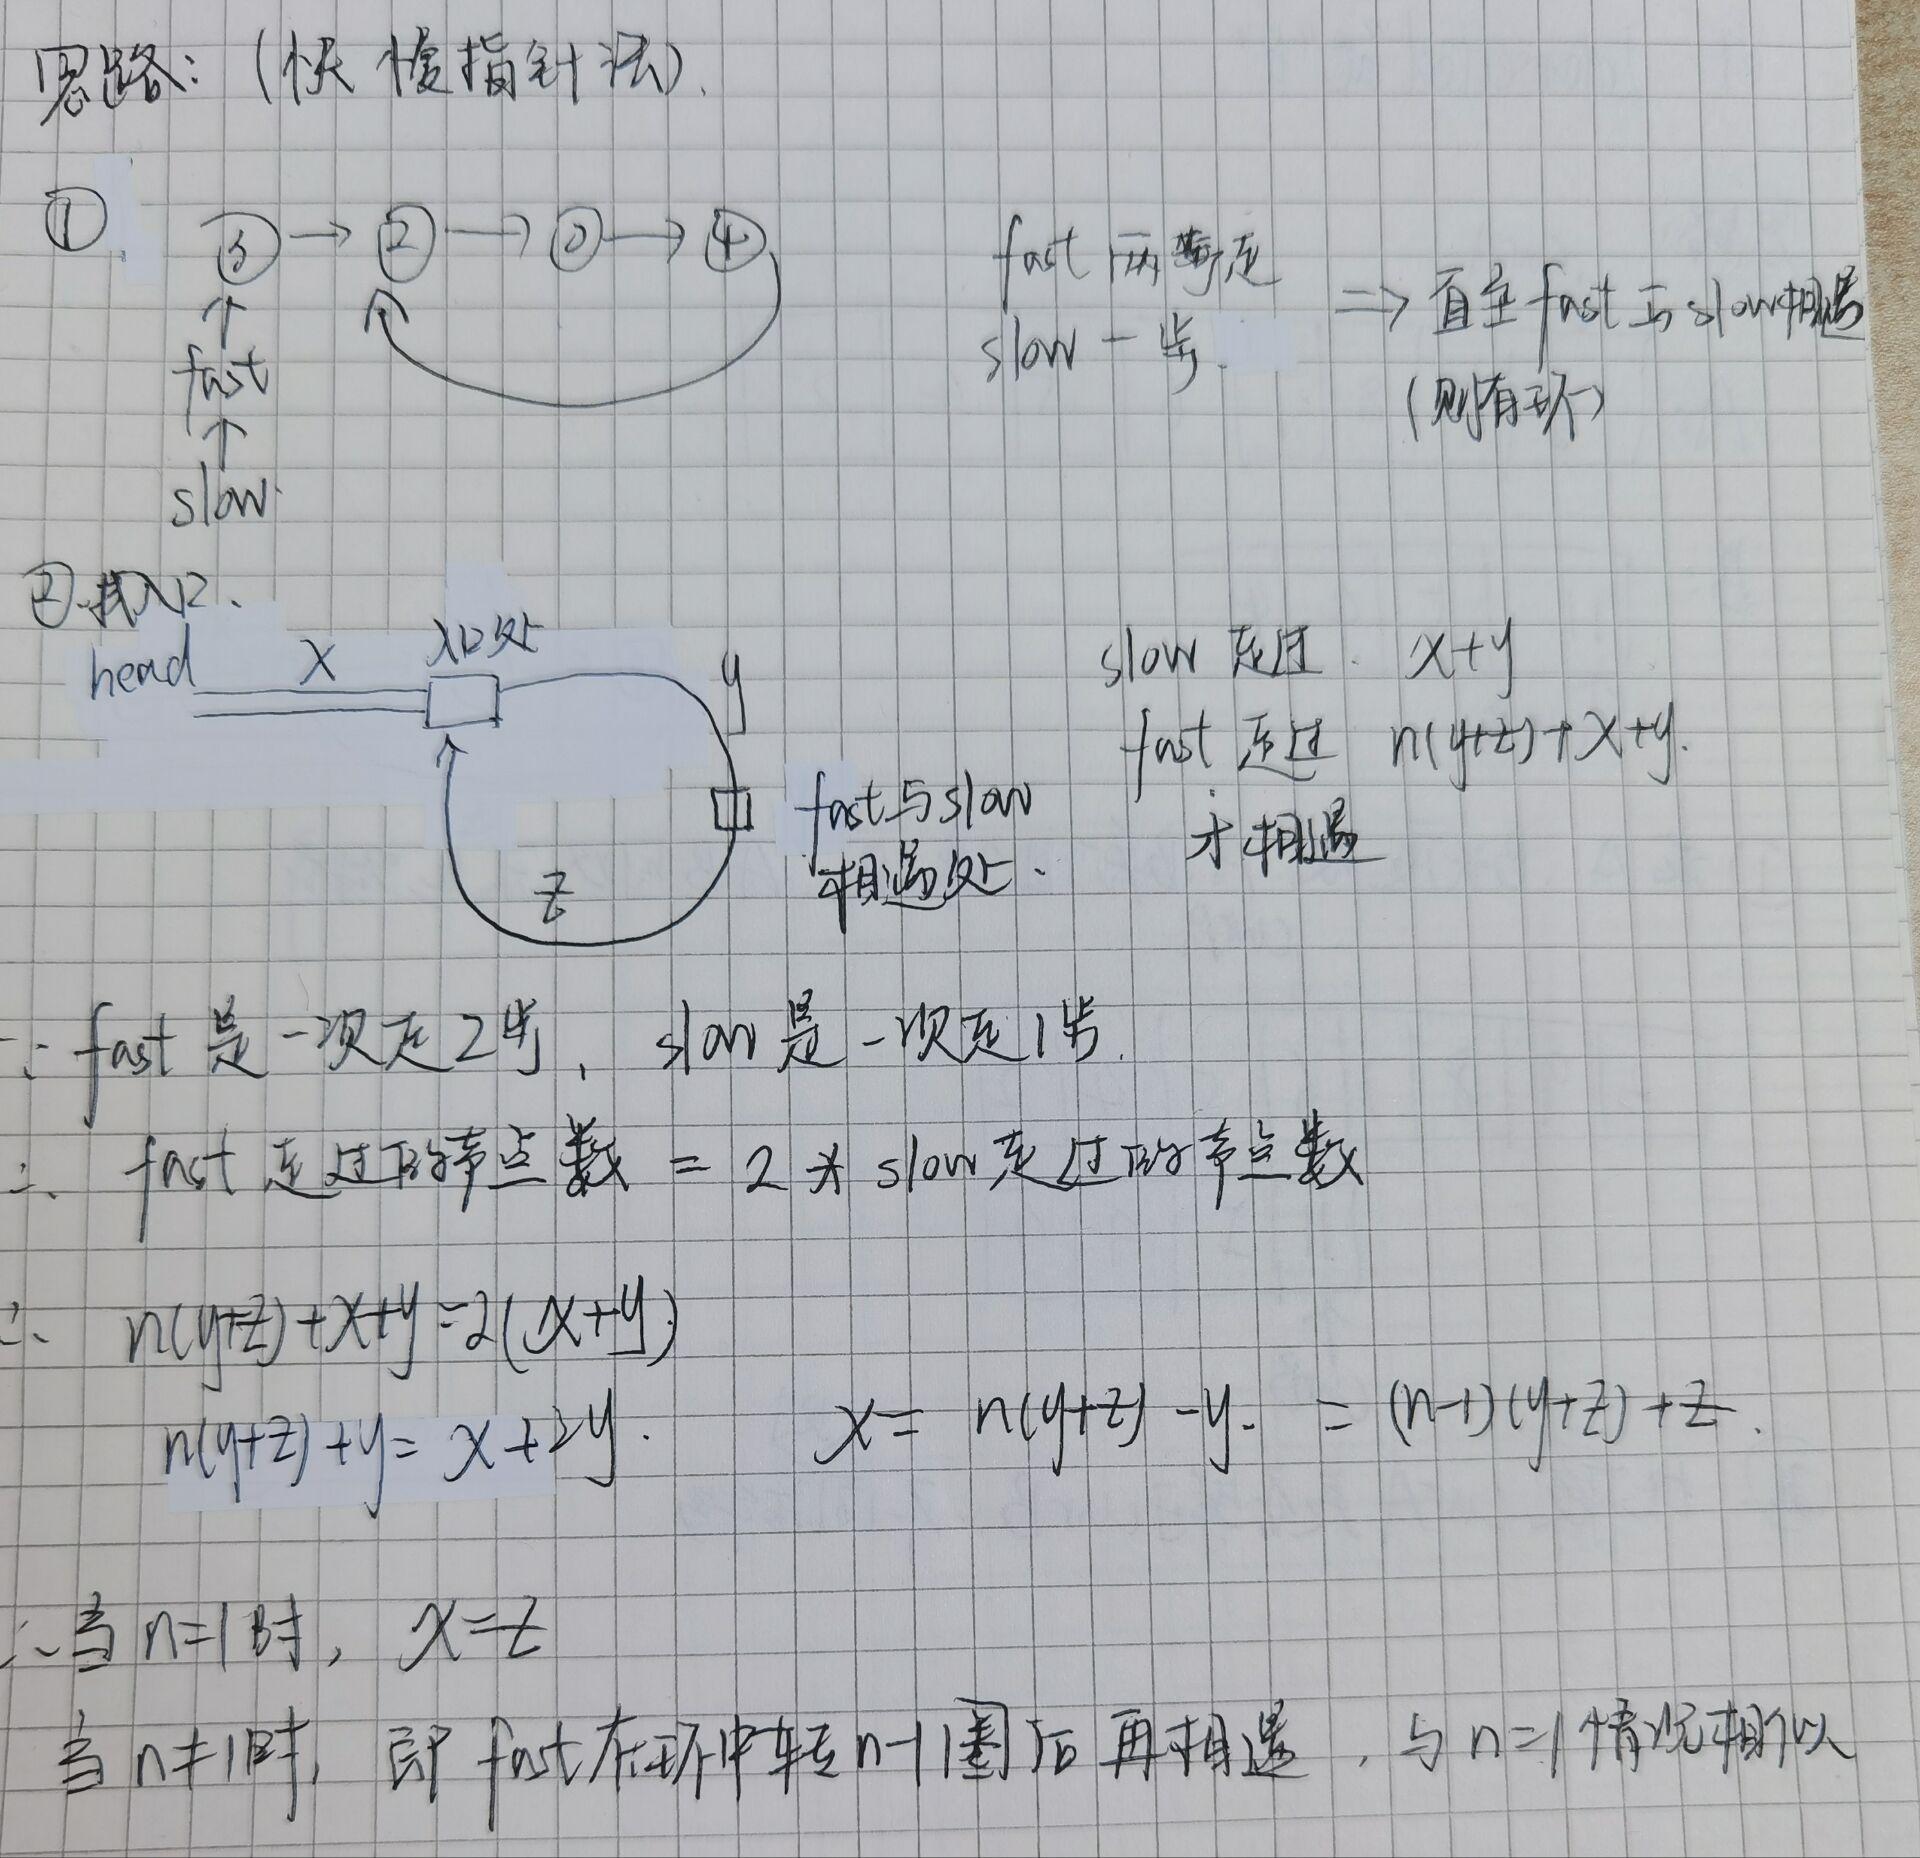 思路：(快慢指针法).
①
③ → ② → ⓪ → ④
↑
fast
↑
slow
fast 两步走
slow 一步.
=> 直至fast与slow相遇
(则有环)
② 找入口.
head x 入口处
y
z
fast与slow
相遇处.
slow 走过 x+y
fast 走过 n(y+z)+x+y.
才相遇
∵ fast 是一次走2步, slow是一次走1步.
∴ fast 走过的节点数 = 2 * slow走过的节点数
∴ n(y+z)+x+y=2(x+y)
n(y+z)+y= x+2y. x= n(y+z)-y. = (n-1)(y+z)+z.
∴当n=1时, x=z
当n≠1时, 即 fast在环中转n-1圈后再相遇, 与n=1情况相似